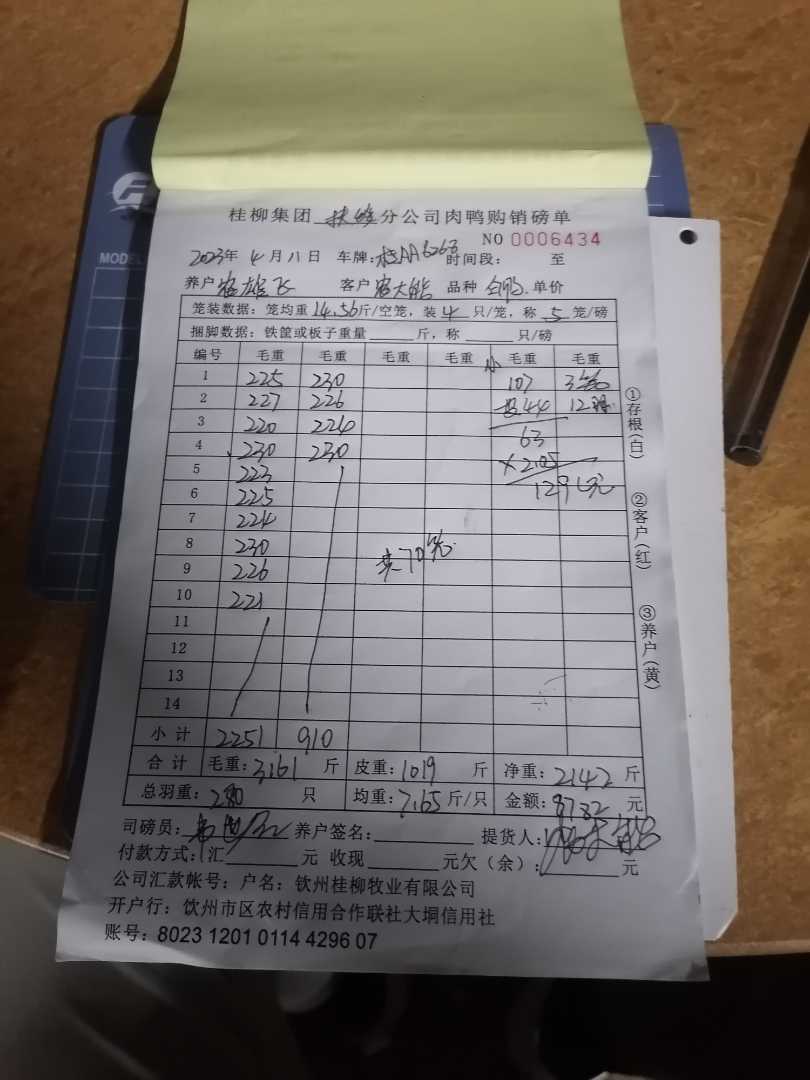 MODEL
桂柳集团 分公司肉鸭购销磅单
NO 0006434
2023年 4 月 八 日 车牌: 桂AA6263 时间段: 至
养户 雄飞 客户 大能 品种 单价
笼装数据: 笼均重 14.56 斤/空笼, 装 4 只/笼, 称 5 笼/磅
捆脚数据: 铁筐或板子重量 斤, 称 只/磅
编号 毛重 毛重 毛重 毛重 毛重 毛重
1 225 230 107 3笼
2 227 226 44 12
3 220 224 63
4 230 230 ×2.05
5 223 129
6 225
7 224
8 230 共70笼
9 226
10 221
11
12
13
14
小计 2251 910
合计 毛重: 3161 斤 皮重: 1019 斤 净重: 2142 斤
总羽重: 280 只 均重: 7.65 斤/只 金额: 8782 元
司磅员: 养户签名: 提货人:
付款方式: 汇 元 收现 元欠(余): 元
公司汇款帐号: 户名: 钦州桂柳牧业有限公司
开户行: 钦州市区农村信用合作联社大垌信用社
账号: 8023 1201 0114 4296 07
①存根(白)
②客户(红)
③养户(黄)